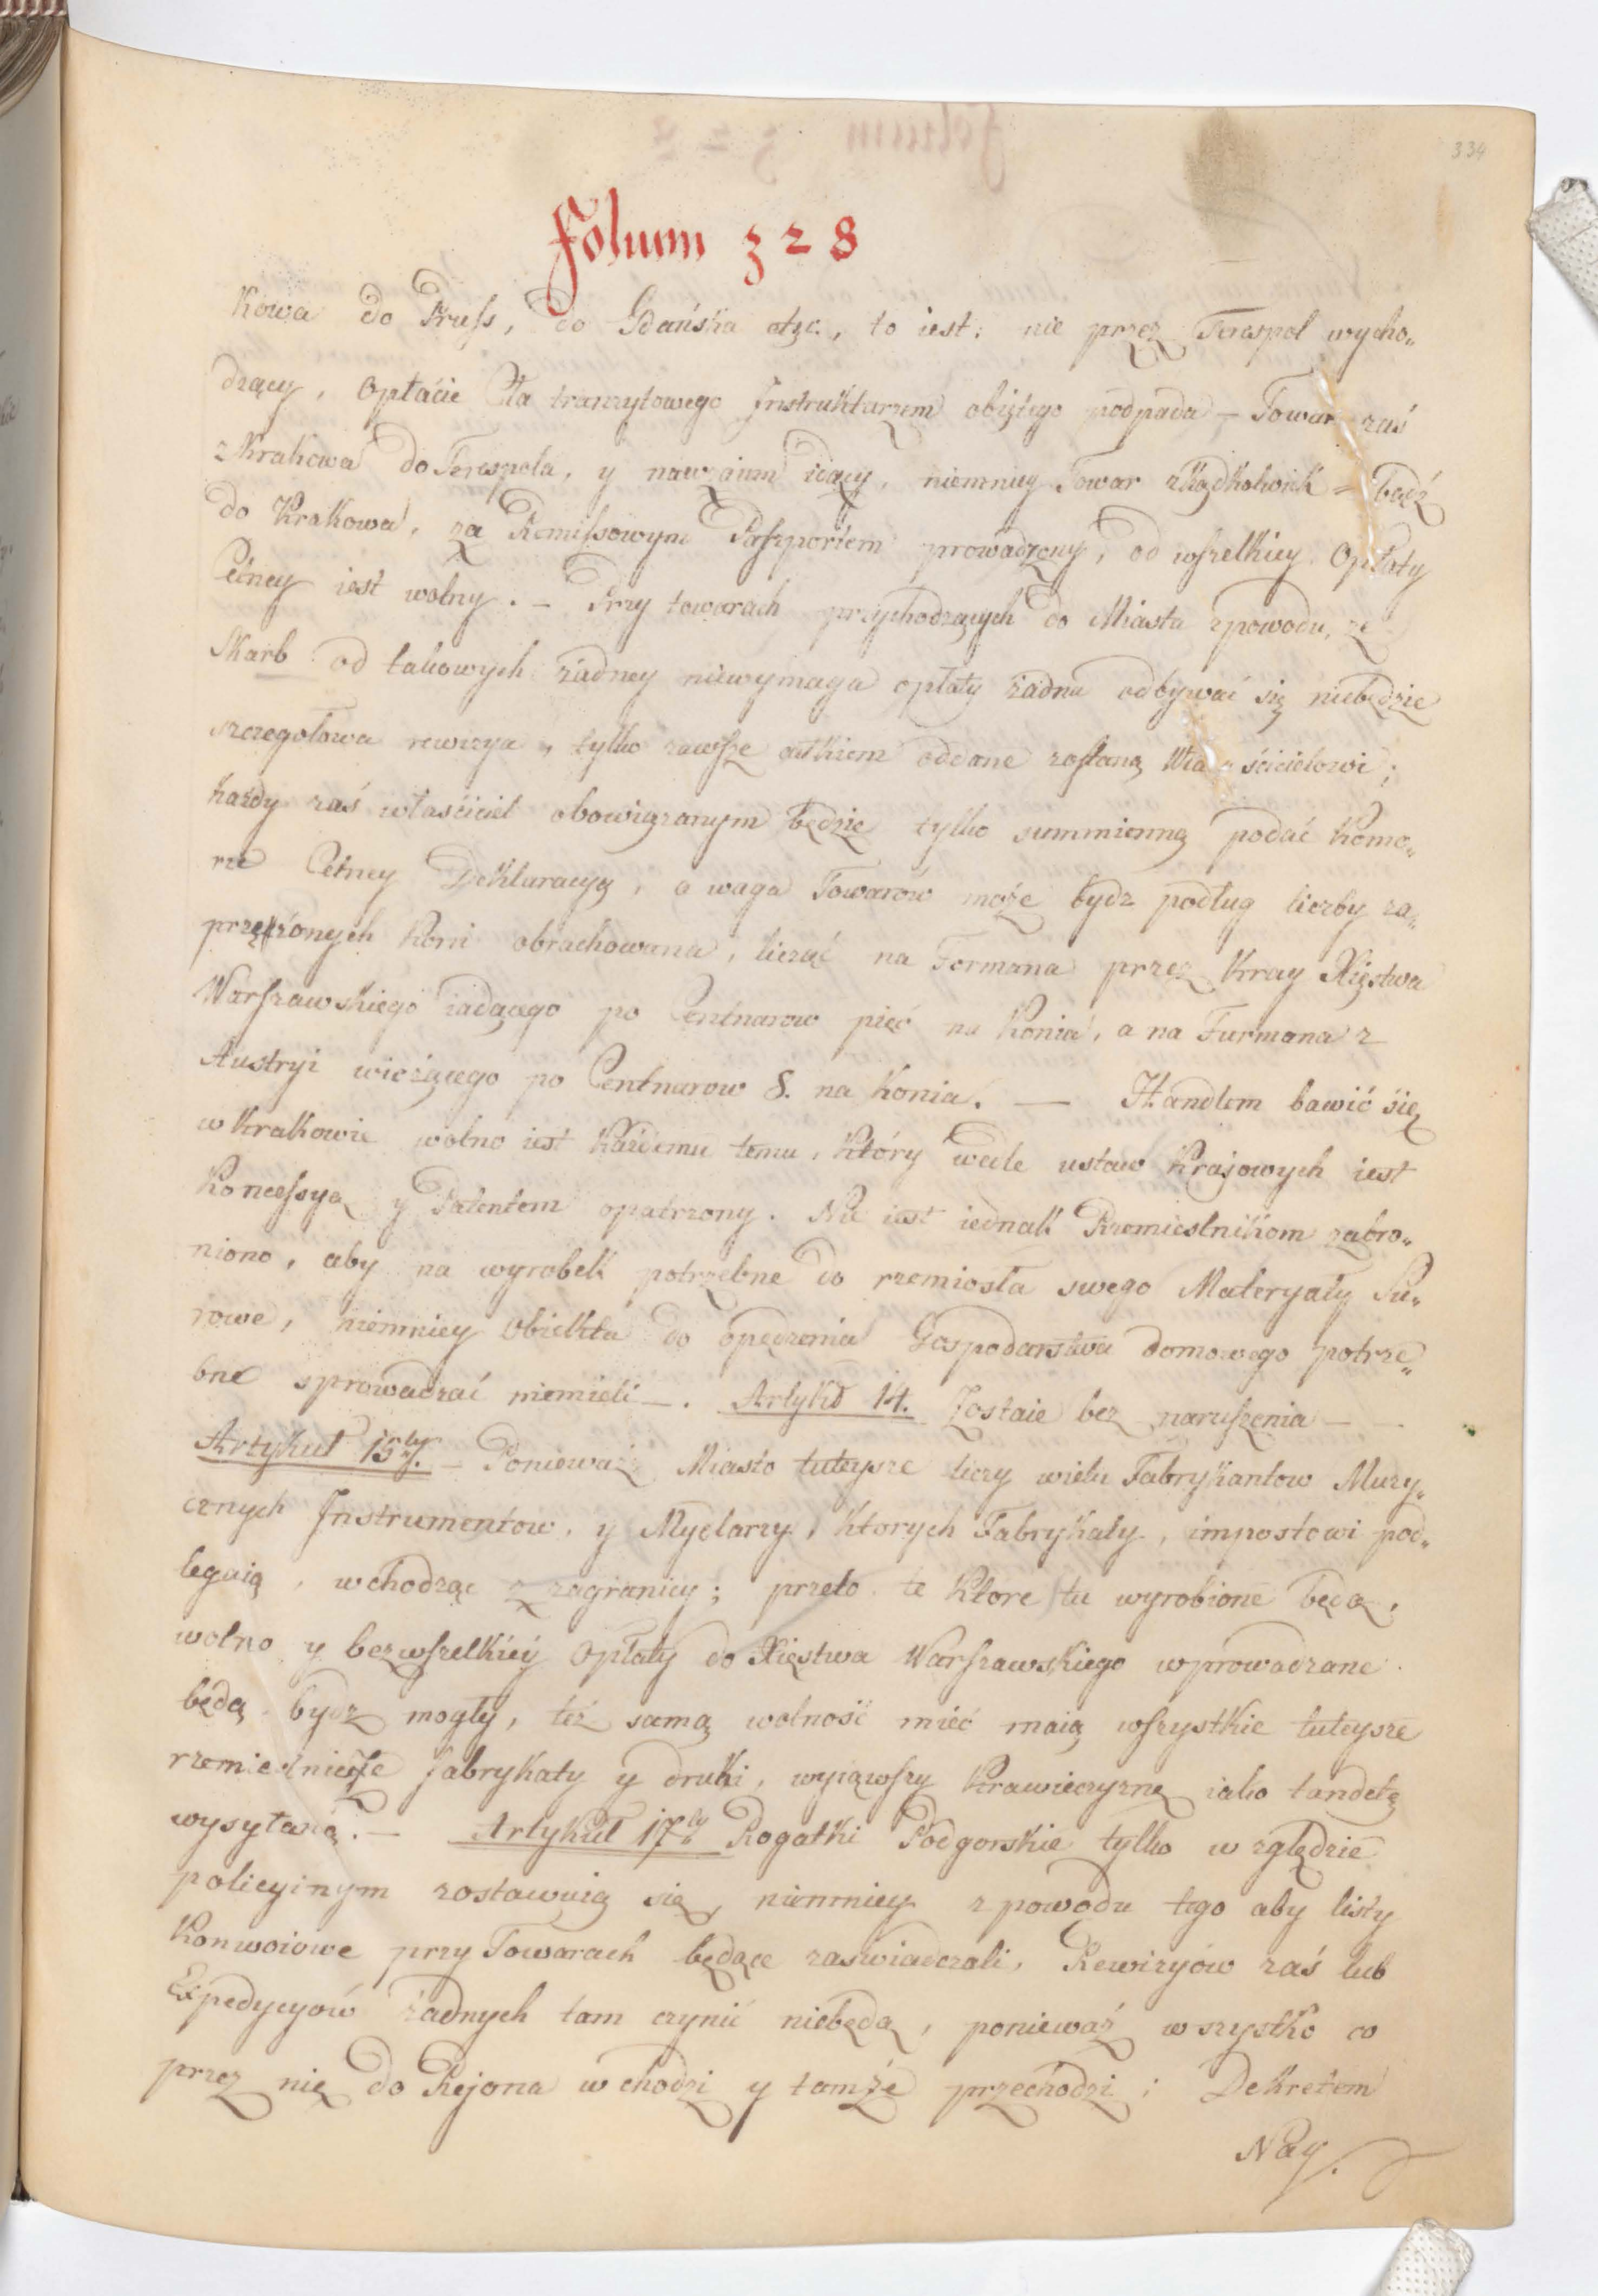 334
Folium 328
kowa do Pruſs, do Gdańska etc., to iest: nie przez Terespol wycho„
dzący, Opłacie Cła tranzytowego Jnstruktarzem obiętego podpada – Towar zaś
z Krakowa do Terespola, y nawzaiem idący, niemniey Towar zkądkolwiek – bądź
do Krakowa, za Remiſsowym Paſzportem prowadzony, od wſzelkiey Opłaty
Celney iest wolny. – Przy towarach przychodzących do Miasta z powodu, że
Skarb od takowych żadney niewymaga opłaty żadna odbywać się niebędzie
szczegołowa rewizya, tylko zawſze całkiem oddane zoſtaną Właścicielowi;
każdy zaś właściciel obowiązanym będzie tylko summienną podać Komo„
rze Celney Deklaracyą, a waga Towarów może bydz podług liczby za„
przężonych Koni obrachowana, licząc na Formana przez Kray Xięstwa
Warſzawskiego iadącego po Centnarow pięć na Konia, a na Furmana z
Austryi wiozącego po Centnarow 8. na Konia. — Handlem bawić się
w Krakowie wolno iest Każdemu temu, Który wedle ustaw Krajowych iest
Konceſsyą y Patentem opatrzony. Nie iest iednak Rzemieslnikom zabro„
niono, aby na wyrobek potrzebne do rzemiosła swego Materyały Su„
rowe, niemniey Obiekta do opędzenia Gospodarstwa domowego potrze„
bne sprowadzać niemieli –. Artykuł 14. Zostaie bez naruſzenia – –
Artykuł 15ty. – Ponieważ Miasto tuteysze liczy wielu Fabrykantow Muzy„
cznych Jnstrumentow, y Mydlarzy, Ktorych Fabrykaty, impostowi pod„
legaią, wchodząc z zagranicy; przeto te Ktore tu wyrobione będą,
wolno y bez wſzelkiéy Opłaty do Xięstwa Warſzawskiego wprowadzane
będą bydz mogły, też samą wolność mieć maią wſzystkie tuteysze
rzemieślnicze fabrykaty y druki, wyiąwſzy Krawieczyznę iako tandetę
wysyłaną. – Artykuł 17ty Rogatki Podgorskie tylko w zględzie
policyinym zostawuią się, niemniey z powodu tego aby listy
Konwoiowe przy Towarach będące zaświadczali, Rewizyów zaś lub
Expedycyów żadnych tam czynić niebędą, ponieważ wszystko co
przez nię do Rejona wchodzi y tamże przechodzi; Dekretem
Nay.